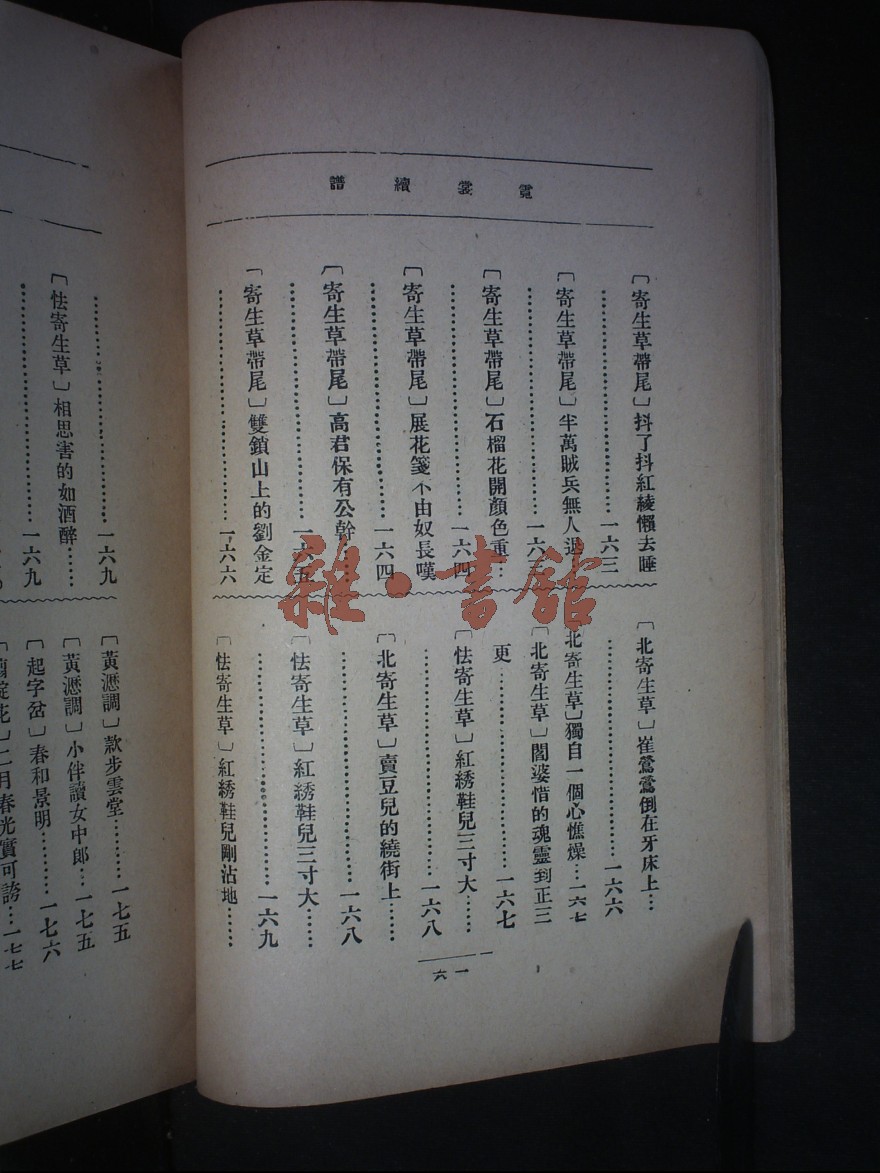 霓裳續譜
〔寄生草帶尾〕抖了抖紅綾懶去睡
………一六三
〔寄生草帶尾〕半萬賊兵無人退
………一六三
〔寄生草帶尾〕石榴花開顏色重…
………一六四
〔寄生草帶尾〕展花箋不由奴長嘆
………一六四
〔寄生草帶尾〕高君保有公幹……
………一六五
〔寄生草帶尾〕雙鎖山上的劉金定
………一六六
〔北寄生草〕崔鶯鶯倒在牙床上…
………一六六
〔北寄生草〕獨自一個心憔燥…一六七
〔北寄生草〕閻婆惜的魂靈到正三
更………一六七
〔怯寄生草〕紅綉鞋兒三寸大……
………一六八
〔北寄生草〕賣豆兒的繞街上……
………一六八
〔怯寄生草〕紅綉鞋兒三寸大……
………一六九
〔怯寄生草〕紅綉鞋兒剛沾地……
一六
………一六九
〔怯寄生草〕相思害的如酒醉……
………一六九
〔黃瀝調〕款步雲堂………一七五
〔黃瀝調〕小伴讀女中郎…一七五
〔起字岔〕春和景明………一七六
花〕二月春光實可誇…一七七
雜·書館